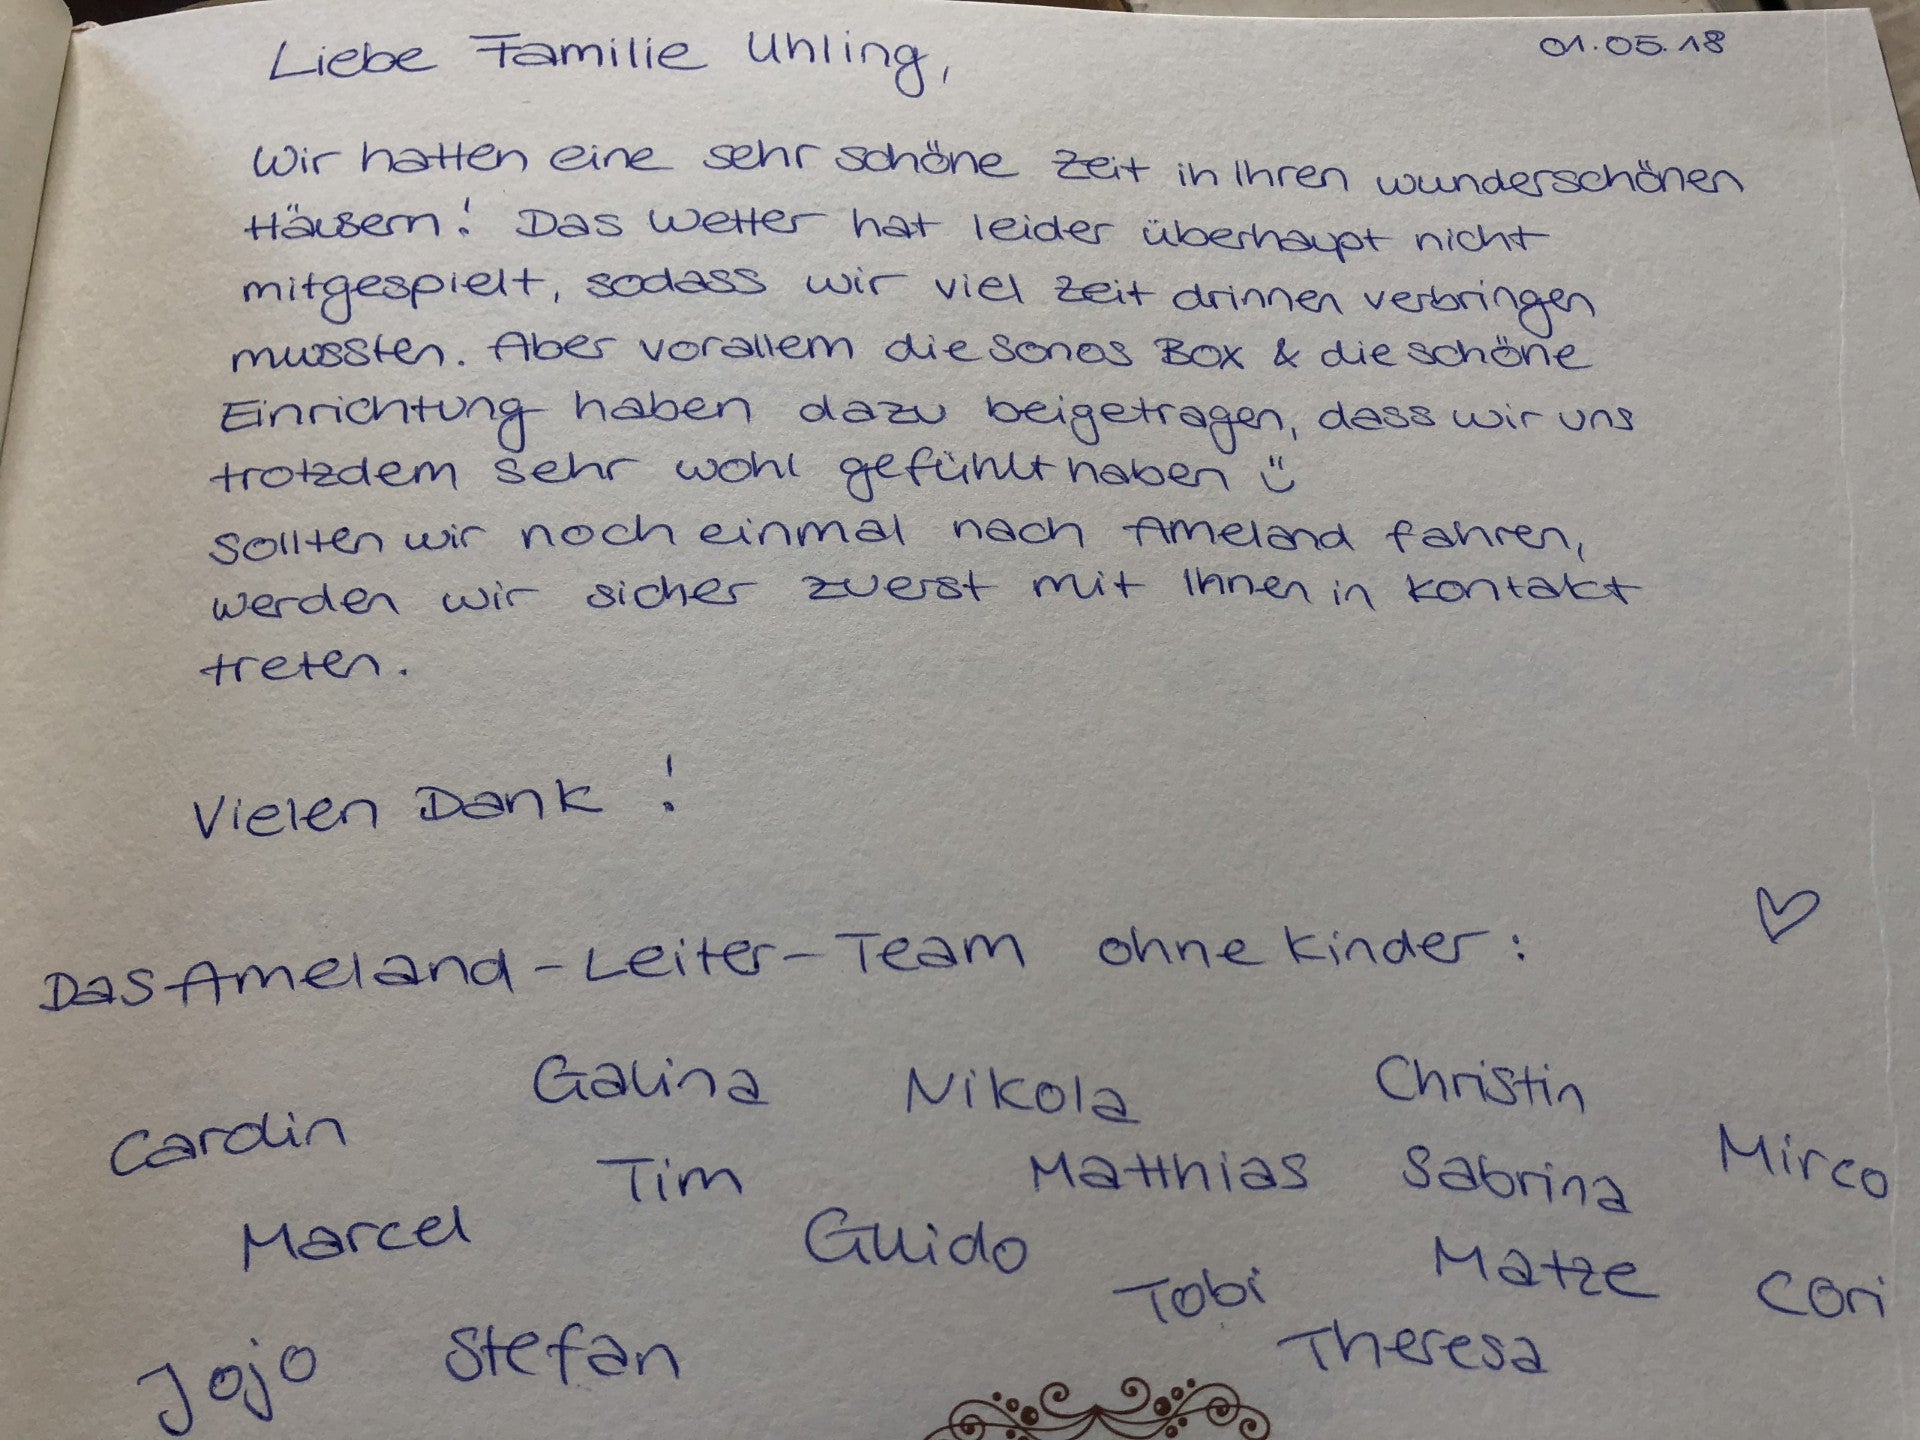 Liebe Familie Uhling,
01.05.18
Wir hatten eine sehr schöne Zeit in Ihren wunderschönen
Häusern! Das Wetter hat leider überhaupt nicht
mitgespielt, sodass wir viel Zeit drinnen verbringen
mussten. Aber vorallem die Sonos Box & die schöne
Einrichtung haben dazu beigetragen, dass wir uns
trotzdem sehr wohl gefühlt haben
Sollten wir noch einmal nach Ameland fahren,
werden wir sicher zuerst mit Ihnen in Kontakt
treten.
Vielen Dank!
Das Ameland-Leiter-Team ohne Kinder:
Carolin Galina Nikola Christin
Marcel Tim Matthias Sabrina Mirco
Guido Tobi Matze Cori
Jojo Stefan Theresa